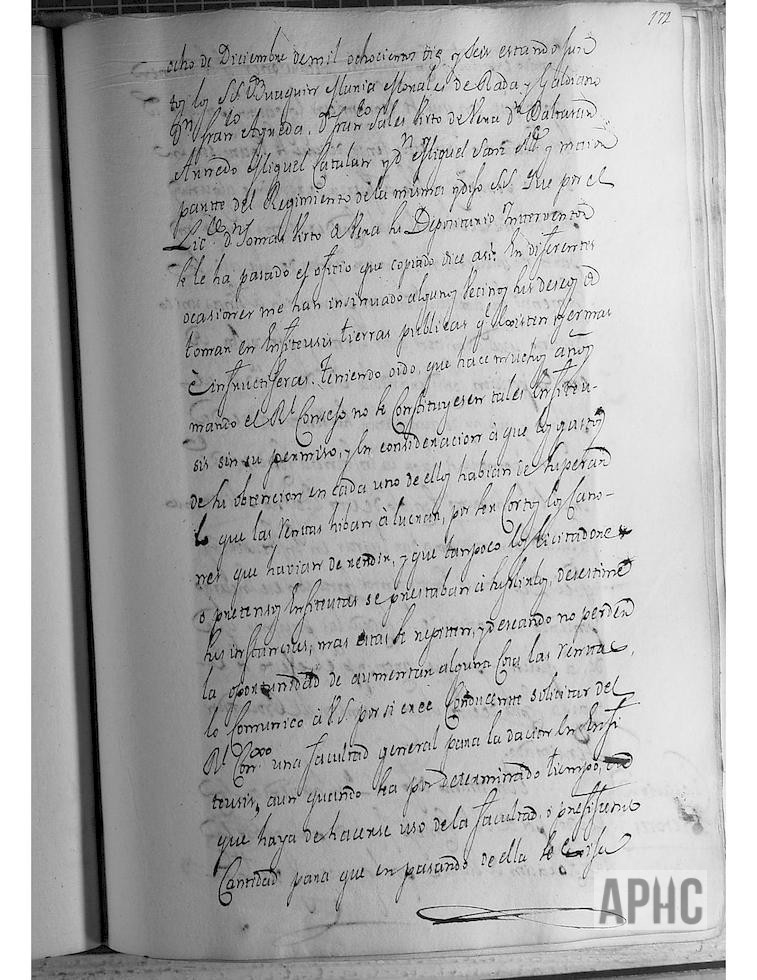 172
ocho de Diciembre de mil ochocientos diez y seis estando jun
tos los SS. Dn Juaquin Maria Morales de Rada y Galdiano
Dn Franco Agueda, Dn Franco Sales Pirto de Vera Dn
Miguel Catalan y Dn Miguel Sanz Alde y maior
partte del Regimiento de la misma y dijo S.S. Que por el
Licdo Dn Tomas Pirto de Vera su Depositario Interventor
se le ha pasado el oficio que copiado dice asi: En diferentes
ocasiones me han insinuado algunos vecinos sus deseos de
tomar en Enfiteusis tierras publicas qe existen yermas
è infructiferas. Teniendo oido, que hace muchos años
mandó el Rl Consejo no se constituyesen tales Enfiteu-
sis sin su permiso, y en consideracion à que los gastos
de su obtencion en cada uno de ellos habian de superar
lo que las Rentas hiban à lucrar, por ser cortos los Cano-
nes que havian de rendir, y que tampoco los licitadores
o pretensos Enfiteutas se prestaban à suplirlos, desestimé
sus instancias, mas estas se repiten, y deseando no perder
la oportunidad de aumentar alguna cosa las Rentas,
lo comunico à V.S. por si cree conducente solicitar del
Rl Conso una facultad general para la dacion en Enfi
teusis, aun quando sea por determinado tiempo, en
que haya de hacerse uso de la facultad, o prefixiendo
Cantidad para que en pasando de ella se
APHC